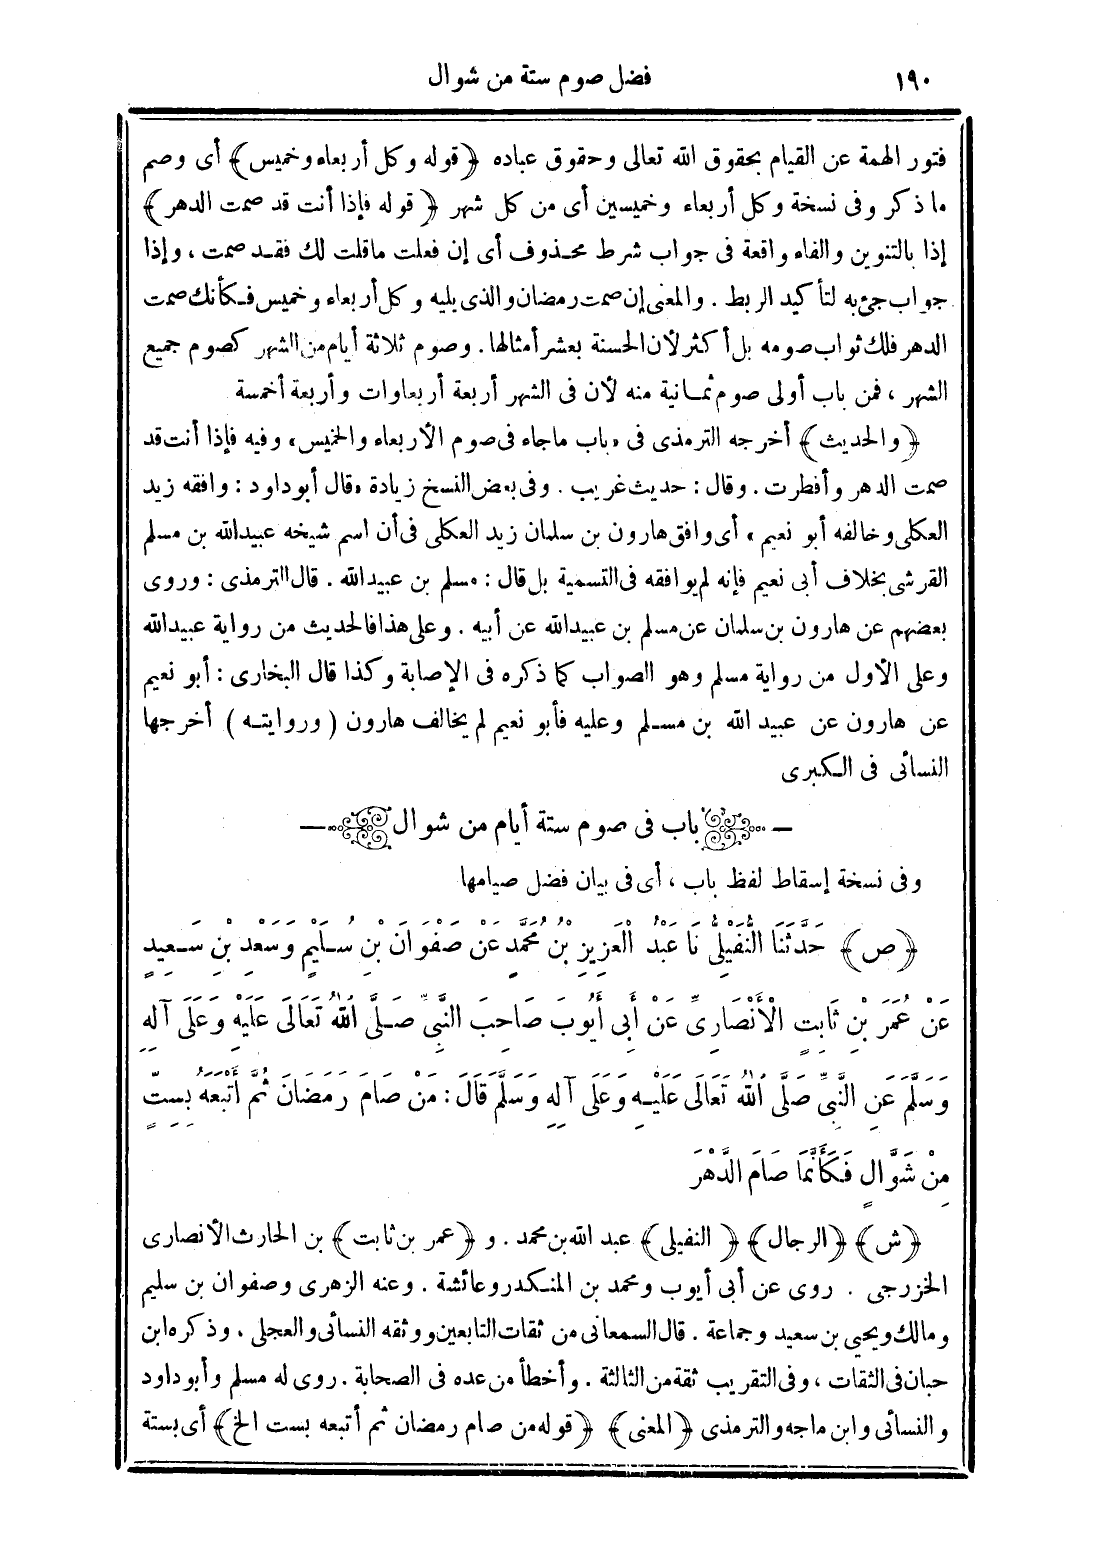 ١٩٠ فضل صوم ستة من شوال
فتور الهمة عن القيام بحقوق الله تعالى وحقوق عباده ﴿قوله وكل أربعاء وخميس﴾ أى وصم
ما ذكر وفى نسخة وكل أربعاء وخميسين أى من كل شهر ﴿قوله فإذا أنت قد صمت الدهر﴾
إذا بالتنوين والفاء واقعة فى جواب شرط محذوف أى إن فعلت ماقلت لك فقد صمت ، وإذا
جواب جئ به لتأكيد الربط . والمعنى إن صمت رمضان والذى يليه وكل أربعاء وخميس فكأنك صمت
الدهر فلك ثواب صومه بل أكثر لأن الحسنة بعشر أمثالها . وصوم ثلاثة أيام من الشهر كصوم جميع
الشهر ، فمن باب أولى صوم ثمانية منه لأن فى الشهر أربعة أربعاوات وأربعة أخمسة
﴿والحديث﴾ أخرجه الترمذى فى «باب ماجاء فى صوم الأربعاء والخميس» وفيه فإذا أنت قد
صمت الدهر وأفطرت . وقال : حديث غريب . وفى بعض النسخ زيادة «قال أبو داود : وافقه زيد
العكلى وخالفه أبو نعيم» أى وافق هارون بن سلمان زيد العكلى فى أن اسم شيخه عبيد الله بن مسلم
القرشى بخلاف أبى نعيم فإنه لم يوافقه فى التسمية بل قال : مسلم بن عبيد الله . قال الترمذى : وروى
بعضهم عن هارون بن سلمان عن مسلم بن عبيد الله عن أبيه . وعلى هذا فالحديث من رواية عبيد الله
وعلى الأول من رواية مسلم وهو الصواب كما ذكره فى الإصابة وكذا قال البخارى : أبو نعيم
عن هارون عن عبيد الله بن مسلم وعليه فأبو نعيم لم يخالف هارون ( وروايته ) أخرجها
النسائى فى الكبرى
باب فى صوم ستة أيام من شوال
وفى نسخة إسقاط لفظ باب ، أى فى بيان فضل صيامها
﴿ص﴾ حَدَّثَنَا النُّفَيْلِىُّ نَا عَبْدُ الْعَزِيزِ بْنُ مُحَمَّدٍ عَنْ صَفْوَانَ بْنِ سُلَيْمٍ وَسَعْدِ بْنِ سَعِيدٍ
عَنْ عُمَرَ بْنِ ثَابِتٍ الْأَنْصَارِىِّ عَنْ أَبِى أَيُّوبَ صَاحِبِ النَّبِىِّ صَلَّى اللهُ تَعَالَى عَلَيْهِ وَعَلَى آلِهِ
وَسَلَّمَ عَنِ النَّبِىِّ صَلَّى اللهُ تَعَالَى عَلَيْهِ وَعَلَى آلِهِ وَسَلَّمَ قَالَ : مَنْ صَامَ رَمَضَانَ ثُمَّ أَتْبَعَهُ بِسِتٍّ
مِنْ شَوَّالٍ فَكَأَنَّمَا صَامَ الدَّهْرَ
﴿ش﴾ ﴿الرجال﴾ ﴿النفيلى﴾ عبد الله بن محمد . و ﴿عمر بن ثابت﴾ بن الحارث الأنصارى
الخزرجى . روى عن أبى أيوب ومحمد بن المنكدر وعائشة . وعنه الزهرى وصفوان بن سليم
ومالك ويحيى بن سعيد وجماعة . قال السمعانى من ثقات التابعين ووثقه النسائى والعجلى ، وذكره ابن
حبان فى الثقات ، وفى التقريب ثقة من الثالثة . وأخطأ من عده فى الصحابة . روى له مسلم وأبو داود
والنسائى وابن ماجه والترمذى ﴿المعنى﴾ ﴿قوله من صام رمضان ثم أتبعه بست الخ﴾ أى بستة